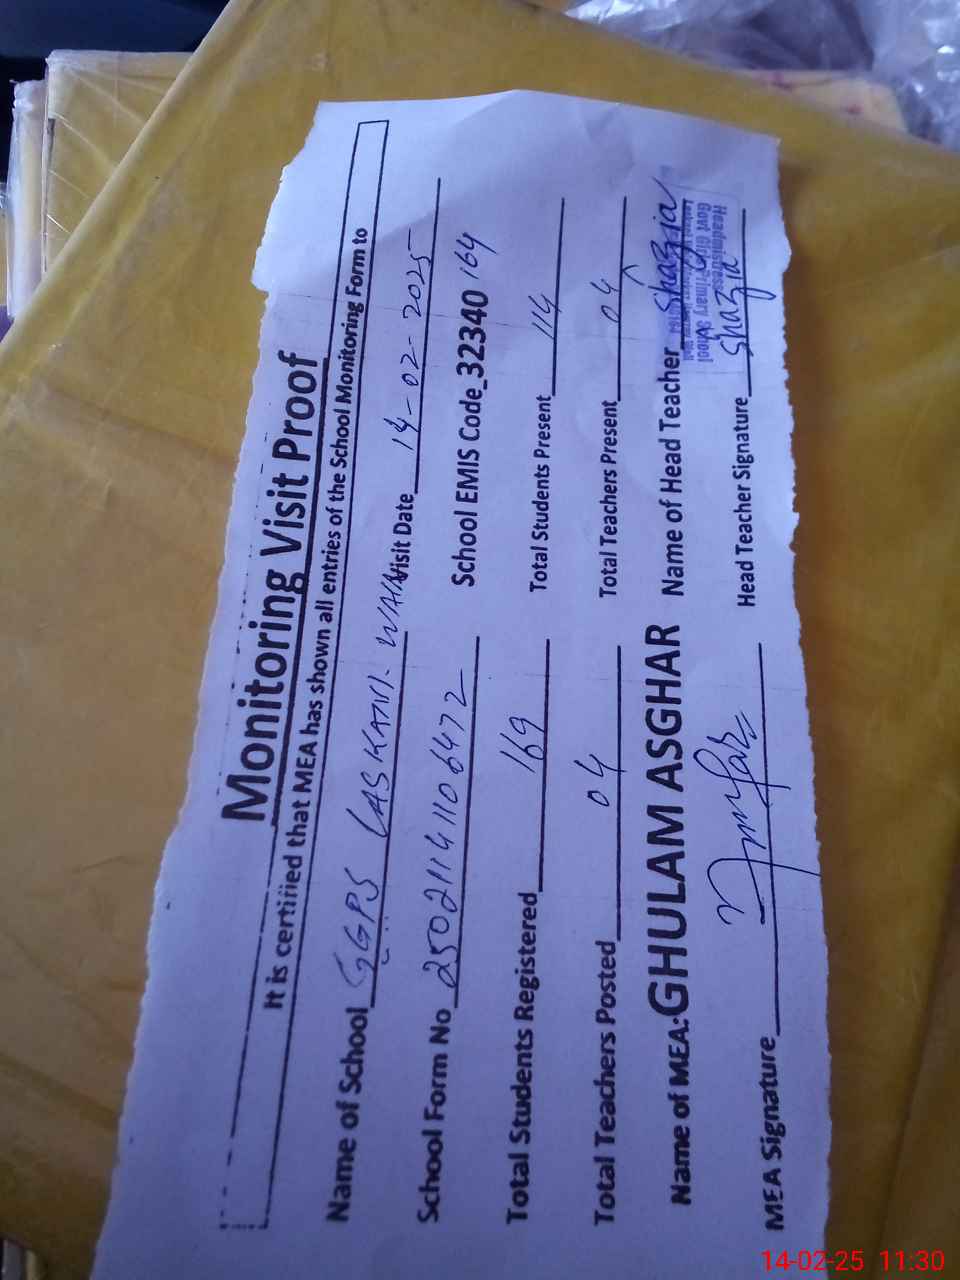 Monitoring Visit Proof
It is certified that MEA has shown all entries of the School Monitoring Form to
Name of School GGPS LASKANI WALA Visit Date 14-02-2025
School Form No 250211411106472 School EMIS Code 32340 164
Total Students Registered 169 Total Students Present 114
Total Teachers Posted 04 Total Teachers Present 04
Name of MEA: GHULAM ASGHAR Name of Head Teacher Shazia
MEA Signature Head Teacher Signature Shazia
Headmistress
Govt Girls Primary School
14-02-25 11:30